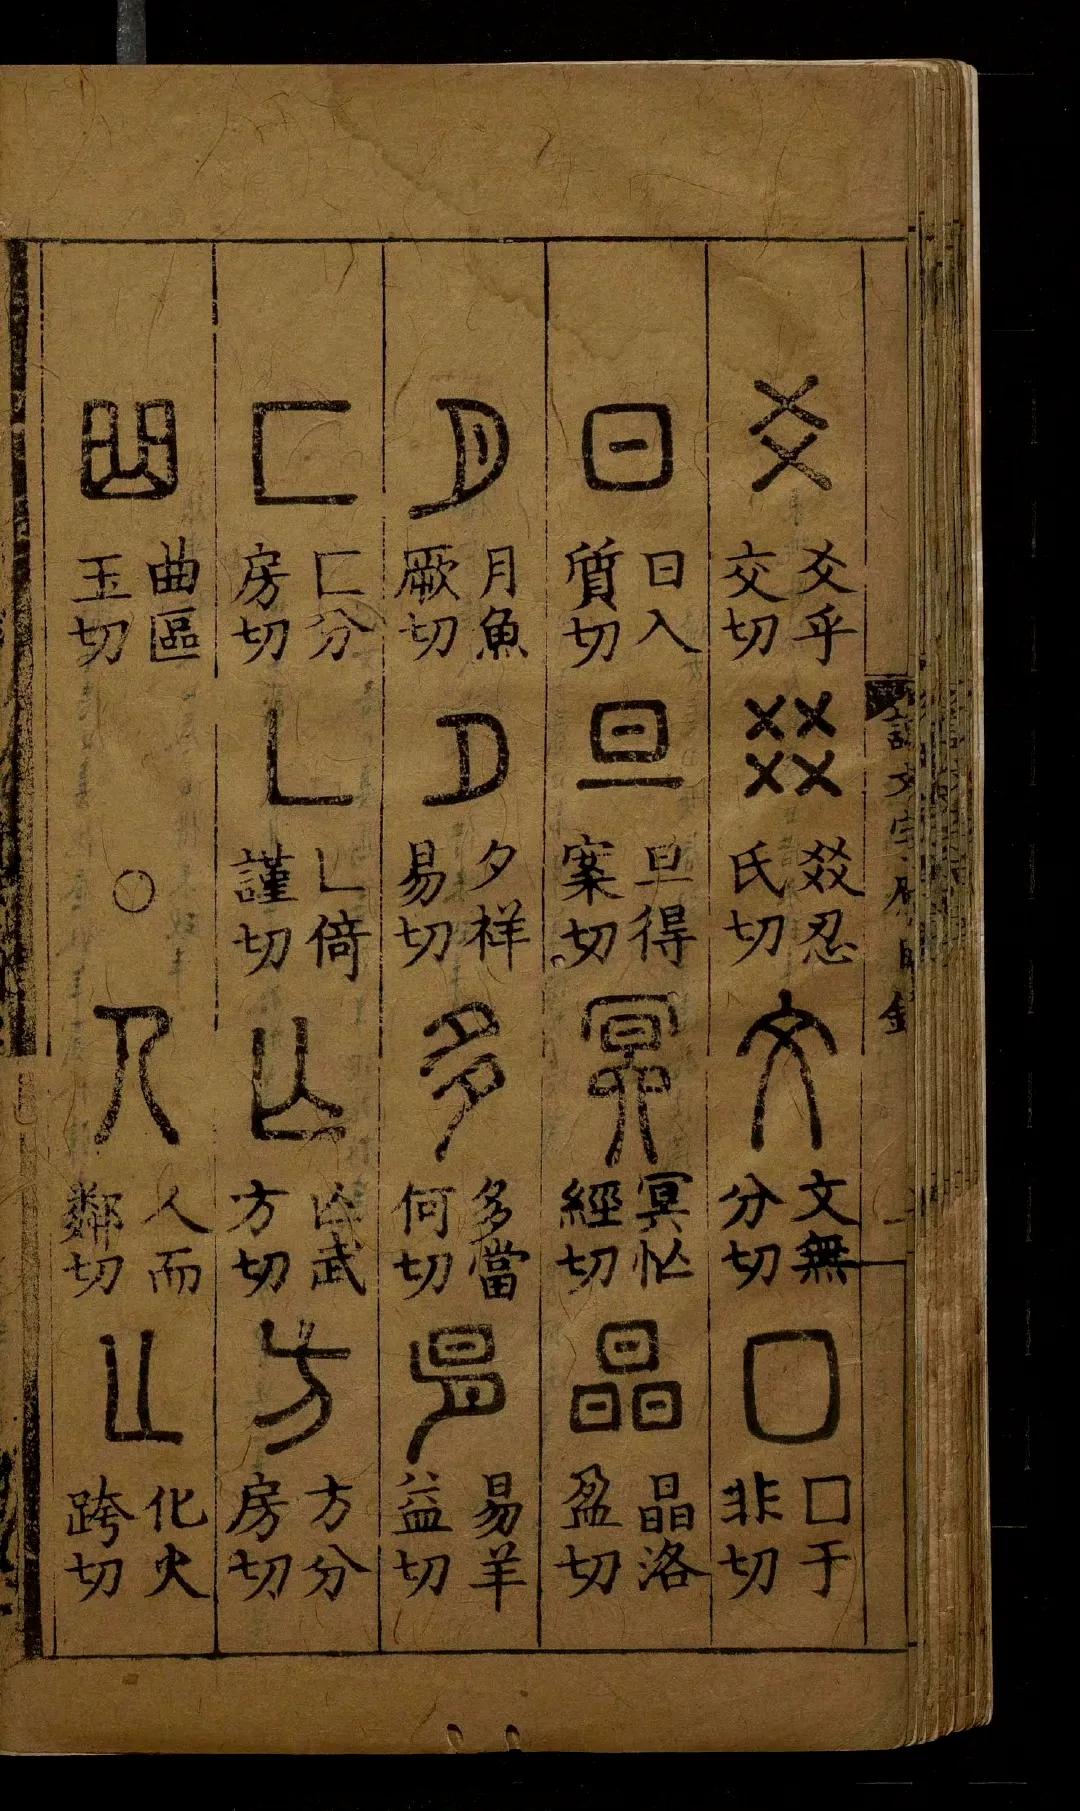 說文字原目錄 一
爻 爻乎交切 㸚 㸚忍氏切 文 文無分切 囗 囗于非切
日 日入質切 旦 旦得案切 冥 冥忙經切 晶 晶洛盈切
月 月魚厥切 夕 夕祥易切 多 多當何切 易 易羊益切
匚 匚分房切 乚 乚倚謹切 亾 亾武方切 方 方分房切
曲 曲區玉切 ○ 人 人而鄰切 𠤎 化火跨切